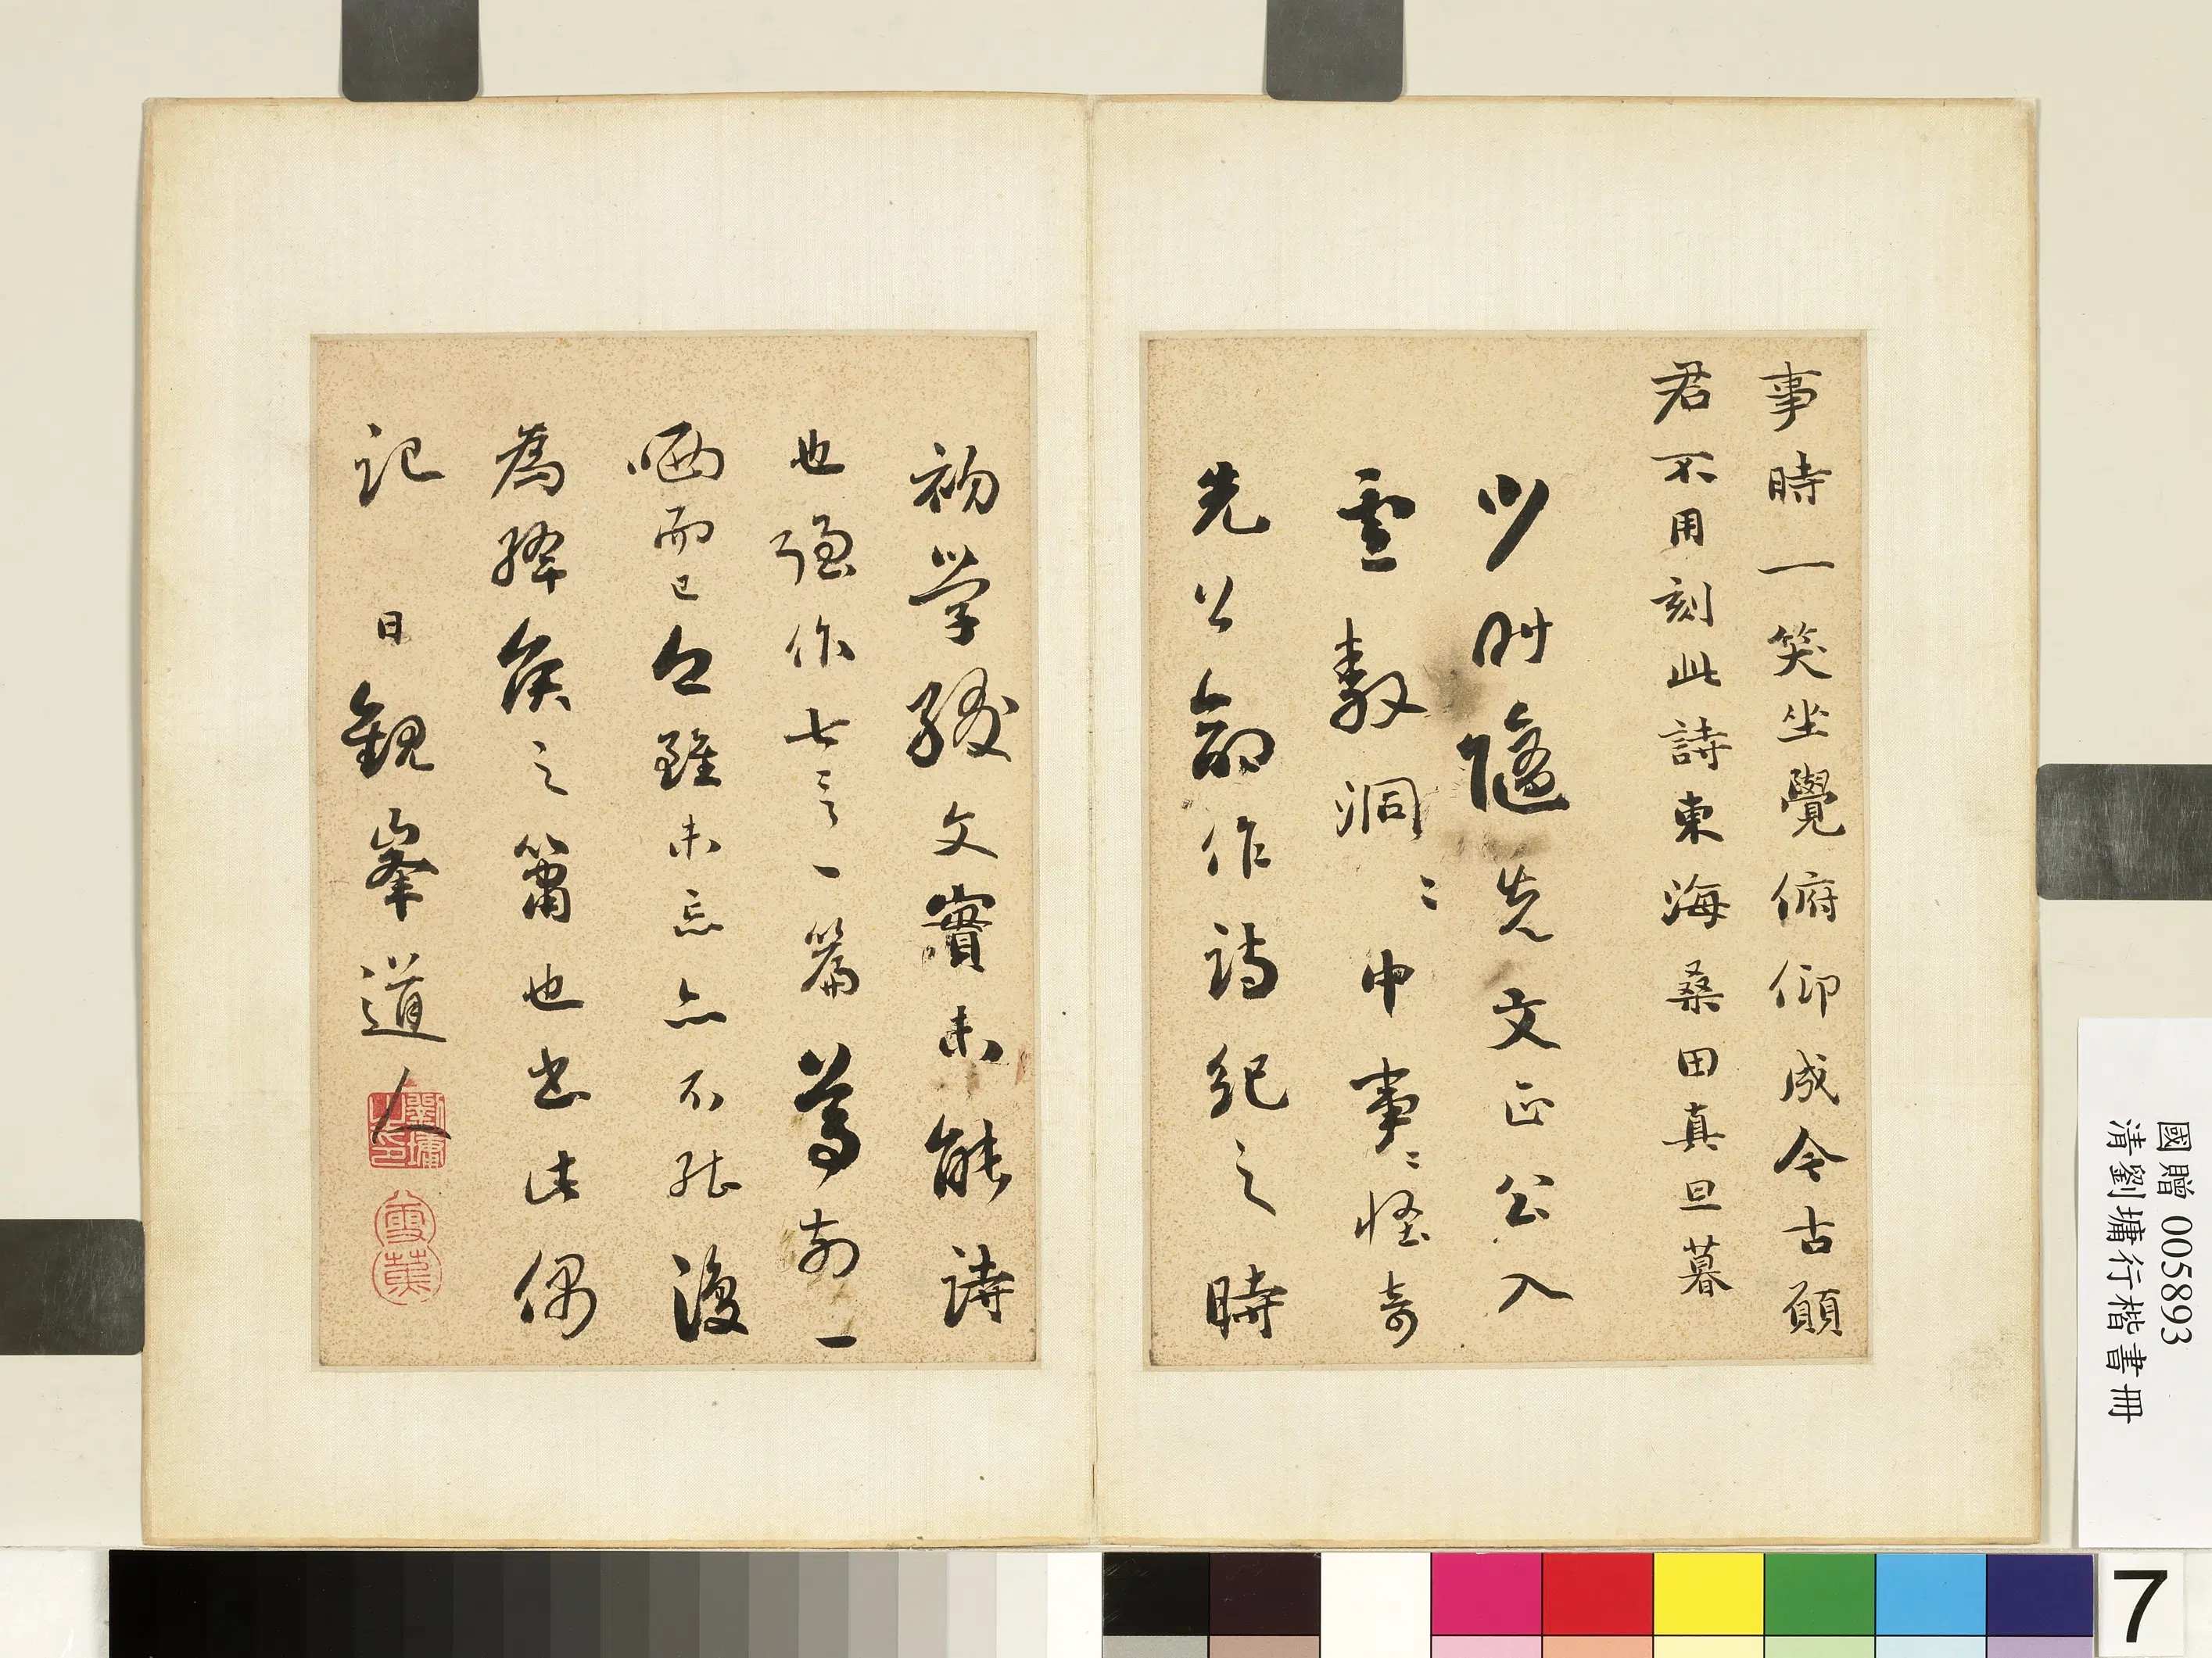 事時一笑坐覺俯仰成今古願
君不用刻此詩東海桑田真旦暮
少时隨先文正公入
雲巖洞洞中事事怪奇
先公命作詩紀之時
初學綴文實未能詩
也强作七言一篇為前一
哂而已今雖未忘亦不能復
為絳矦之簫也書此偶
記 日觀峯道人
劉墉之印
國贈 005893
清劉墉行楷書冊
7